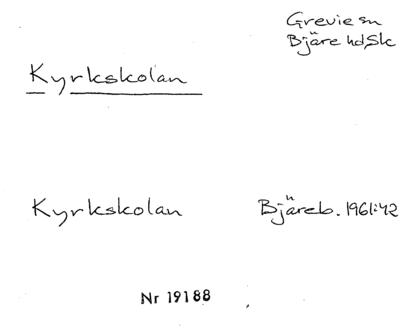 Grevie sn
Bjäre hd, Sk
Kyrkskolan
Kyrkskolan Bjäreb. 1961:42
Nr 19188